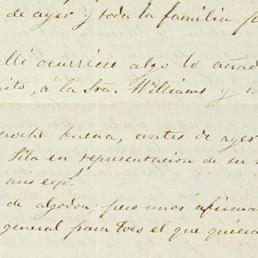 de ayer y toda la familia
Mi ocurriese algo lo añad
ito, á la Sra. Williams y
noche buena, antes de ayer
Pita en representacion de su
mis esp.
de algodon; pero unos afirma
general para todo el que quiera